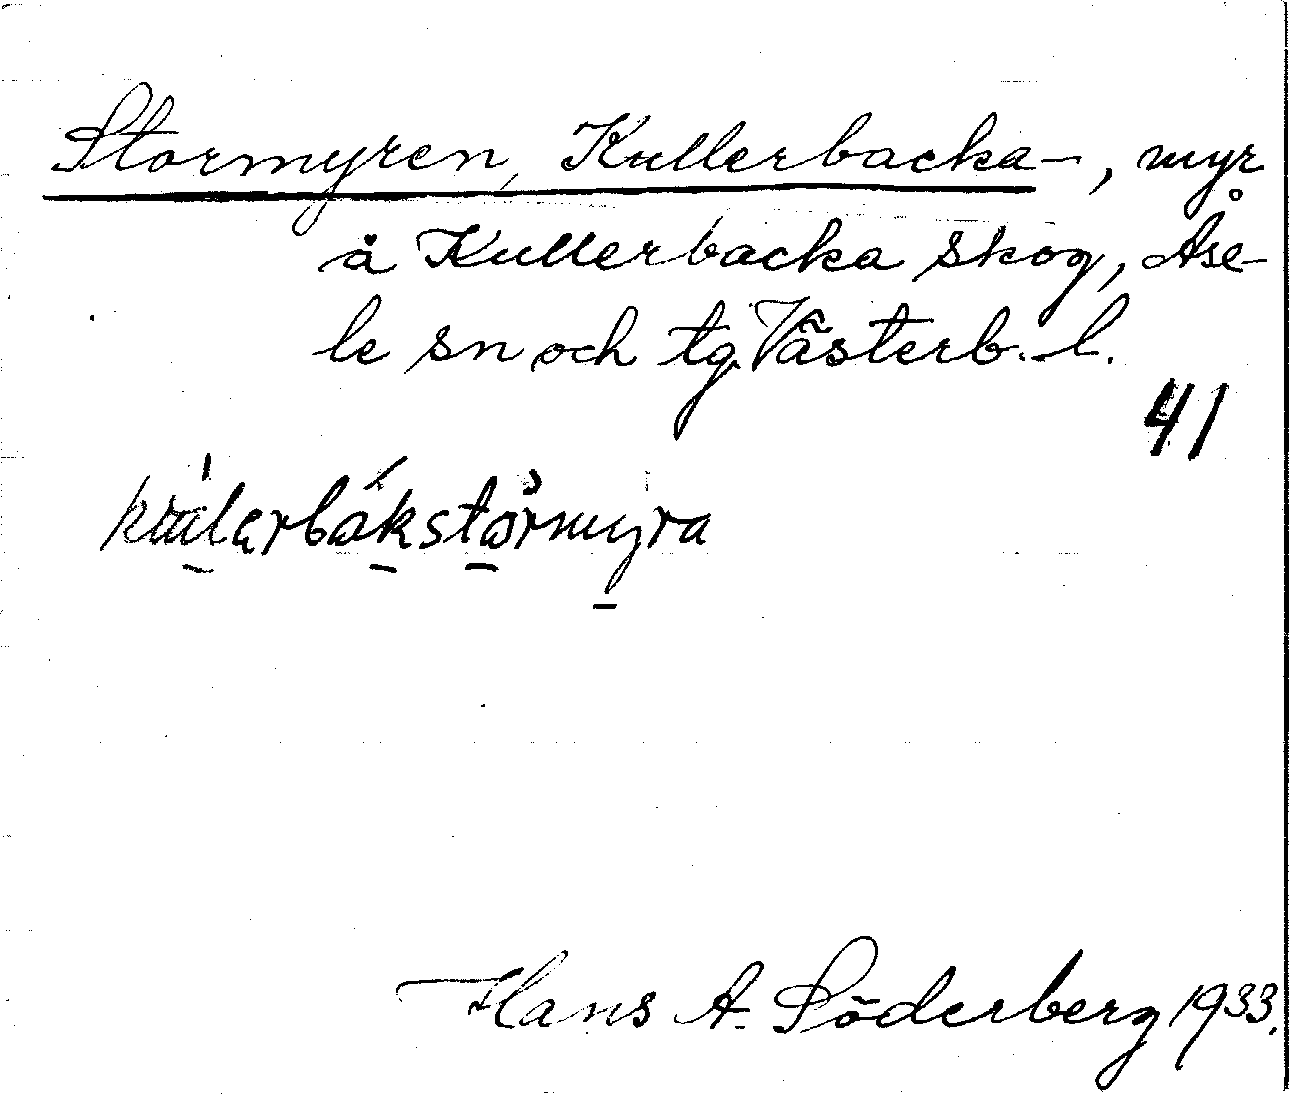 Stormyren, Kullerbacka-, myr
å Kullerbacka skog, Åse-
le sn och tg. Västerb. l.
41
Hans A. Söderberg 1933.